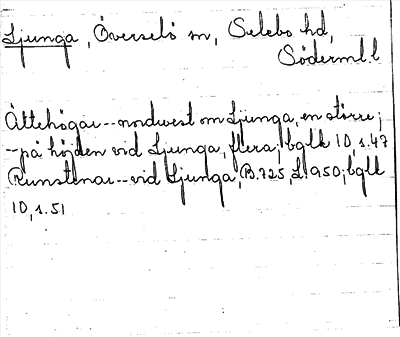 Ljunga, Överselö sn, Selebo hd,
Söderml. l
Ättehögar -- nordvest om Ljunga, en större;
-- på höjden vid Ljunga, flera; bglk 10, s. 47
Runstenar -- vid Ljunga, B. 725, L. 950; bglk
10, s. 51